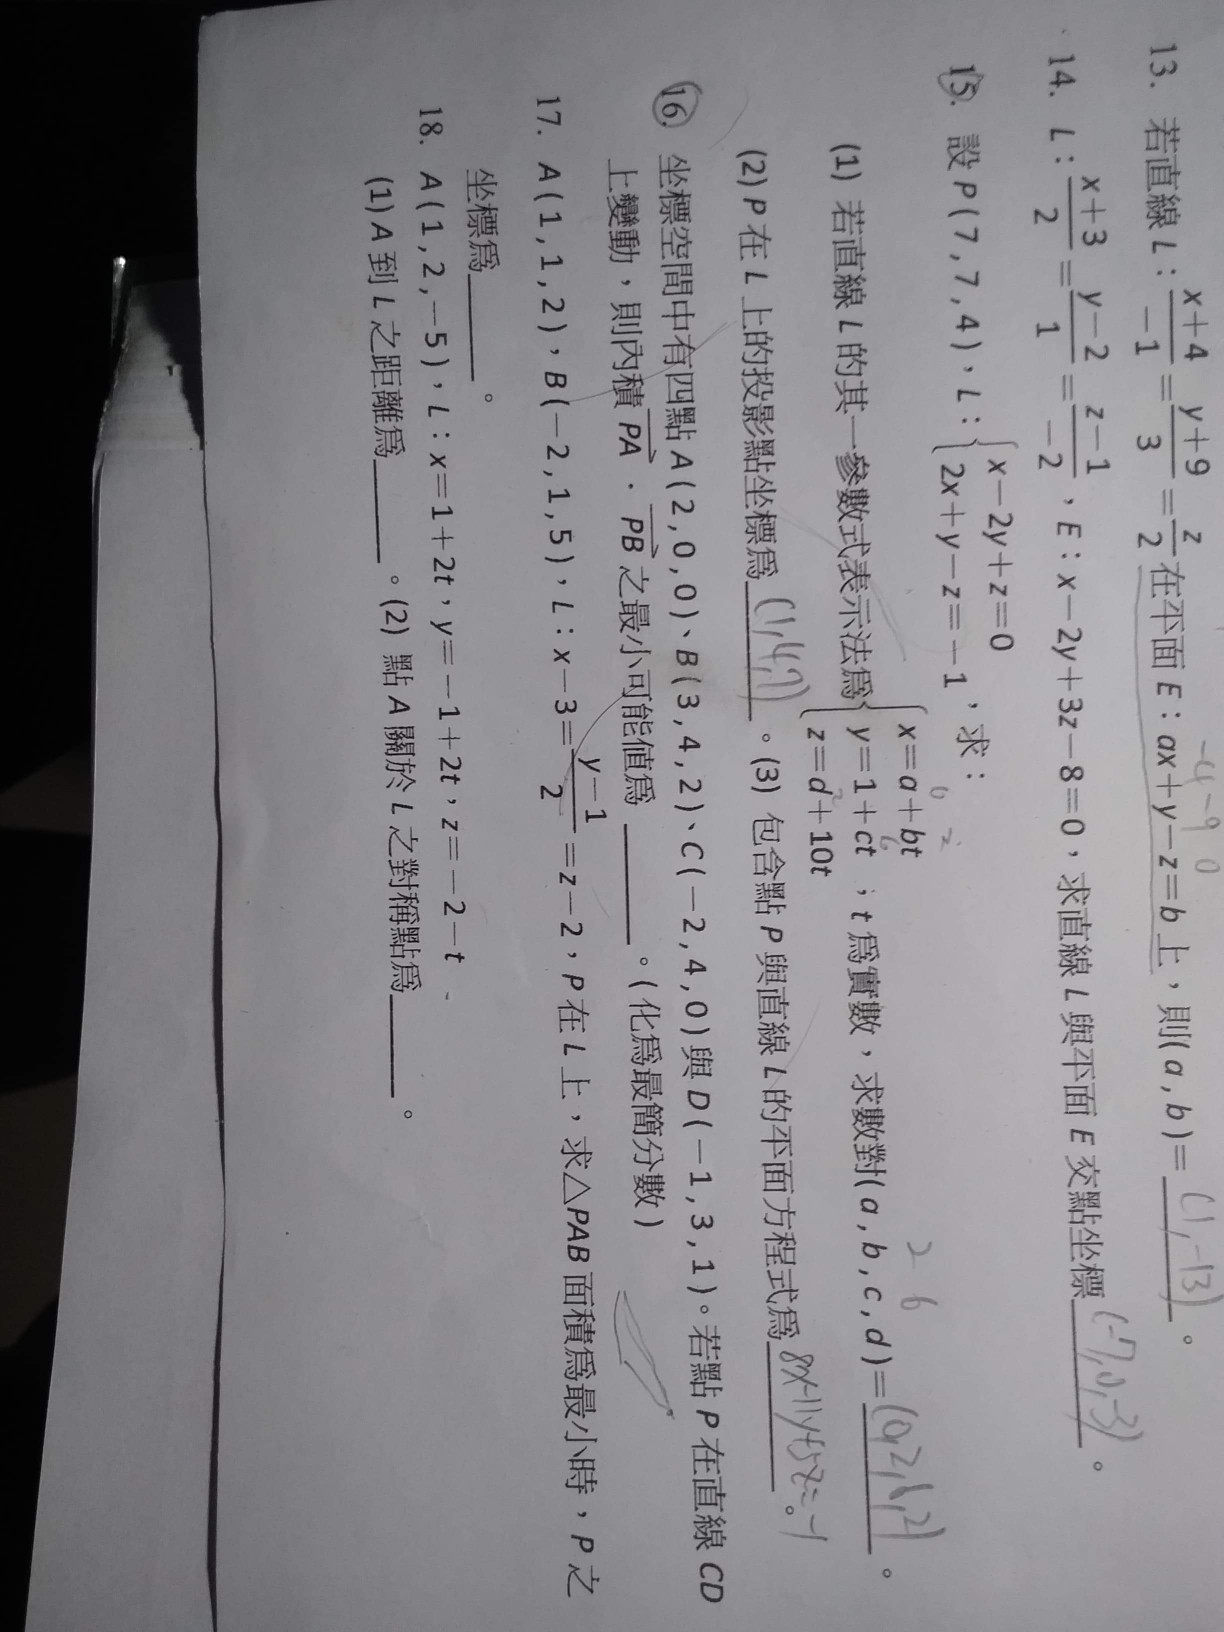 13. 若直線 L : (x+4)/(-1) = (y+9)/3 = z/2 在平面 E : ax+y-z=b 上，則(a,b)= (1,-13) 。
-4 -9 0
14. L : (x+3)/2 = (y-2)/1 = (z-1)/(-2)，E : x-2y+3z-8=0，求直線 L 與平面 E 交點坐標 (-7,0,-3) 。
15. 設 P(7,7,4)、L : { x-2y+z=0 , 2x+y-z=-1 ，求：
(1) 若直線 L 的其一參數式表示法爲 { x=a+bt , y=1+ct , z=d+10t ；t 爲實數，求數對(a,b,c,d)= (0,2,6,2) 。
0 2
6
2
2 6
(2) P 在 L 上的投影點坐標爲 (1,4,7) 。(3) 包含點 P 與直線 L 的平面方程式爲 8x-11y+5z=-1 。
16. 坐標空間中有四點 A(2,0,0)、B(3,4,2)、C(-2,4,0)與 D(-1,3,1)。若點 P 在直線 CD
上變動，則內積 PA · PB 之最小可能値爲 。(化爲最簡分數)
17. A(1,1,2)，B(-2,1,5)，L : x-3 = (y-1)/2 = z-2，P 在 L 上，求△PAB 面積爲最小時，P 之
坐標爲 。
18. A(1,2,-5)，L : x=1+2t，y=-1+2t，z=-2-t
(1) A 到 L 之距離爲 。(2) 點 A 關於 L 之對稱點爲 。